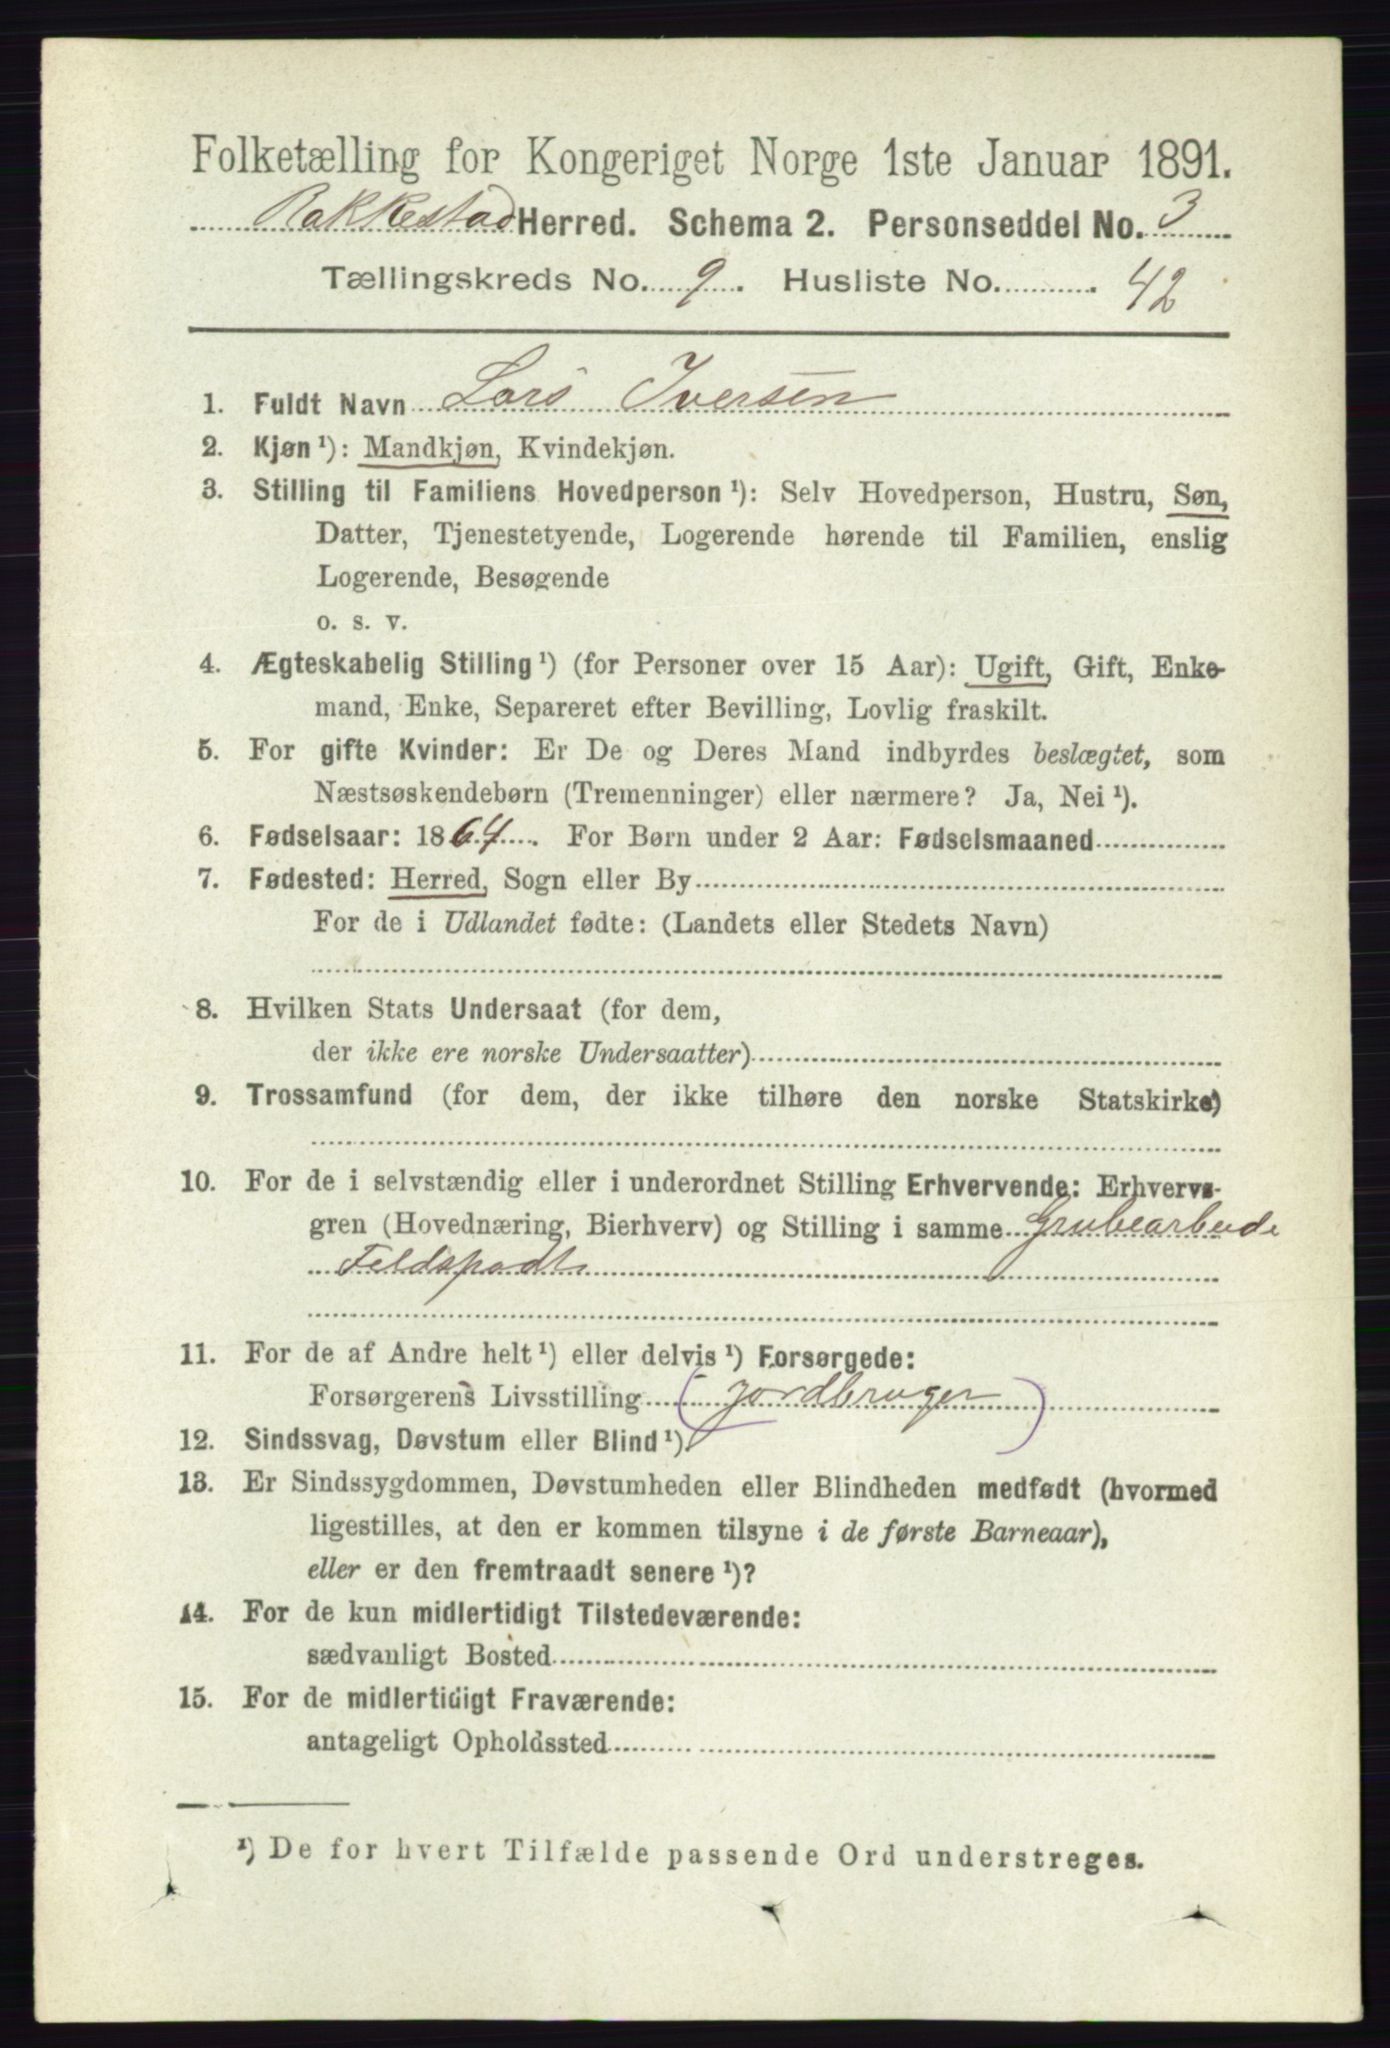 Folketælling for Kongeriget Norge 1ste Januar 1891.
Rakkestad Herred. Schema 2. Personseddel No. 3
Tællingskreds No. 9. Husliste No. 42
1. Fuldt Navn Lars Iversen
2. Kjøn ¹): Mandkjøn, Kvindekjøn.
3. Stilling til Familiens Hovedperson ¹): Selv Hovedperson, Hustru, Søn,
Datter, Tjenestetyende, Logerende hørende til Familien, enslig
Logerende, Besøgende
o. s. v.
4. Ægteskabelig Stilling ¹) (for Personer over 15 Aar): Ugift, Gift, Enke-
mand, Enke, Separeret efter Bevilling, Lovlig fraskilt.
5. For gifte Kvinder: Er De og Deres Mand indbyrdes beslægtet, som
Næstsøskendebørn (Tremenninger) eller nærmere? Ja, Nei ¹).
6. Fødselsaar: 1864. For Børn under 2 Aar: Fødselsmaaned
7. Fødested: Herred, Sogn eller By
For de i Udlandet fødte: (Landets eller Stedets Navn)
8. Hvilken Stats Undersaat (for dem,
der ikke ere norske Undersaatter)
9. Trossamfund (for dem, der ikke tilhøre den norske Statskirke)
10. For de i selvstændig eller i underordnet Stilling Erhvervende: Erhvervs-
gren (Hovednæring, Bierhverv) og Stilling i samme Grubearbeide
Feldspadt
11. For de af Andre helt ¹) eller delvis ¹) Forsørgede:
Forsørgerens Livsstilling (Jordbruger)
12. Sindssvag, Døvstum eller Blind ¹).
13. Er Sindssygdommen, Døvstumheden eller Blindheden medfødt (hvormed
ligestilles, at den er kommen tilsyne i de første Barneaar),
eller er den fremtraadt senere ¹)?
14. For de kun midlertidigt Tilstedeværende:
sædvanligt Bosted
15. For de midlertidigt Fraværende:
antageligt Opholdssted
¹) De for hvert Tilfælde passende Ord understreges.